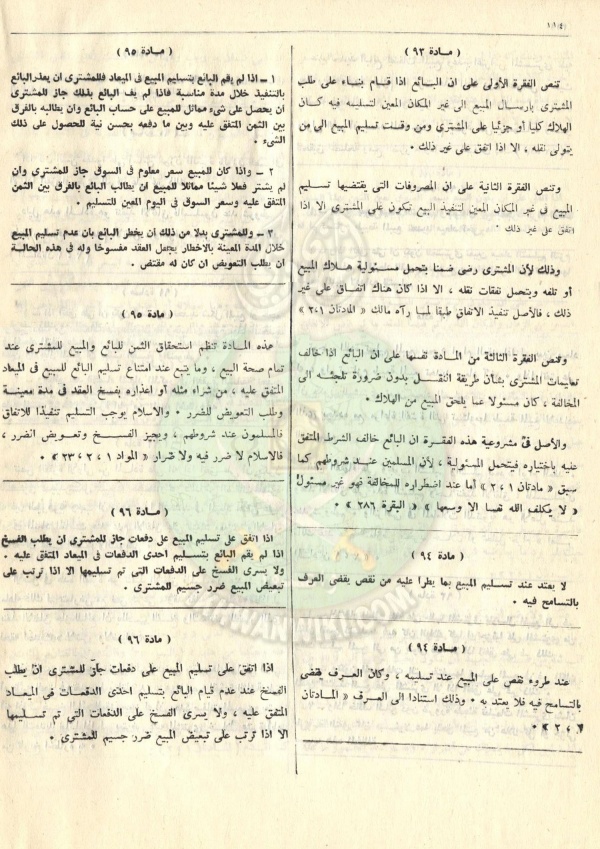 (١١٤)
( مادة ٩٣ )
تنص الفقرة الأولى على ان البائع اذا قام بناء على طلب
المشترى بارسال المبيع الى غير المكان المعين لتسليمه فيه كان
الهلاك كليا أو جزئيا على المشترى ومن وقت تسليم المبيع الى من
يتولى نقله . الا اذا اتفق على غير ذلك .
وتنص الفقرة الثانية على ان المصروفات التى يقتضيها تسليم
المبيع فى غير المكان المعين لتنفيذ البيع تكون على المشترى الا اذا
اتفق على غير ذلك .
وذلك لأن المشترى رضى ضمنا بتحمل مسئولية هلاك المبيع
أو تلفه وبتحمل نفقات نقله ، الا اذا كان هناك اتفاق على غير
ذلك ، فالأصل تنفيذ الاتفاق طبقا لما رآه مالك « المادتان ١ ، ٢ »
وتنص الفقرة الثالثة من المادة نفسها على ان البائع اذا خالف
تعليمات المشترى بشأن طريقة النقل بدون ضرورة تلجئه الى
المخالفة ، كان مسئولا عما يلحق المبيع من الهلاك .
والأصل فى مشروعية هذه الفقرة ان البائع خالف الشرط المتفق
عليه باختياره فيتحمل المسئولية ، لأن المسلمين عند شروطهم كما
سبق « مادتان ١ ، ٢ » أما عند اضطراره للمخالفة فهو غير مسئول
« لا يكلف الله نفسا الا وسعها » « البقرة ٢٨٦ » .
( مادة ٩٤ )
لا يعتد عند تسليم المبيع بما يطرا عليه من نقص يقضى العرف
بالتسامح فيه .
( مادة ٩٤ )
عند طروء نقص على المبيع عند تسليمه ، وكان العرف يقضى
بالتسامح فيه فلا يعتد به . وذلك استنادا الى العرف « المادتان
٢ ، ٦ » .
( مادة ٩٥ )
١ ــ اذا لم يقم البائع بتسليم المبيع فى الميعاد فللمشترى ان يعذر البائع
بالتنفيذ خلال مدة مناسبة فاذا لم يف البائع بذلك جاز للمشترى
أن يحصل على شىء مماثل للمبيع على حساب البائع وان يطالبه بالفرق
بين الثمن المتفق عليه وبين ما دفعه بحسن نية للحصول على ذلك
الشىء .
٢ ــ واذا كان للمبيع سعر معلوم فى السوق جاز للمشترى وان
لم يشتر فعلا شيئا مماثلا للمبيع ان يطالب البائع بالفرق بين الثمن
المتفق عليه وسعر السوق فى اليوم المعين للتسليم .
٣ ــ وللمشترى بدلا من ذلك ان يخطر البائع بان عدم تسليم المبيع
خلال المدة المعينة بالاخطار يجعل العقد مفسوخا وله فى هذه الحالة
ان يطلب التعويض ان كان له مقتض .
( مادة ٩٥ )
هذه المادة تنظم استحقاق الثمن للبائع والمبيع للمشترى عند
تمام صحة البيع ، وما يتبع عند امتناع تسليم البائع للمبيع فى الميعاد
المتفق عليه ، من شراء مثله أو اعذاره بفسخ العقد فى مدة معينة
وطلب التعويض للضرر . والاسلام يوجب التسليم تنفيذا للاتفاق
فالمسلمون عند شروطهم ، ويجيز الفسخ وتعويض الضرر ،
فالاسلام لا ضرر فيه ولا ضرار « المواد ١ ، ٢ ، ٢٣ » .
( مادة ٩٦ )
اذا اتفق على تسليم المبيع على دفعات جاز للمشترى ان يطلب الفسخ
اذا لم يقم البائع بتسليم احدى الدفعات فى الميعاد المتفق عليه .
ولا يسرى الفسخ على الدفعات التى تم تسليمها الا اذا ترتب على
تبعيض المبيع ضرر جسيم للمشترى .
( مادة ٩٦ )
اذا اتفق على تسليم المبيع على دفعات جاز للمشترى ان يطلب
الفسخ عند عدم قيام البائع بتسليم احدى الدفعات فى الميعاد
المتفق عليه ، ولا يسرى الفسخ على الدفعات التى تم تسليمها
الا اذا ترتب على تبعيض المبيع ضرر جسيم للمشترى .